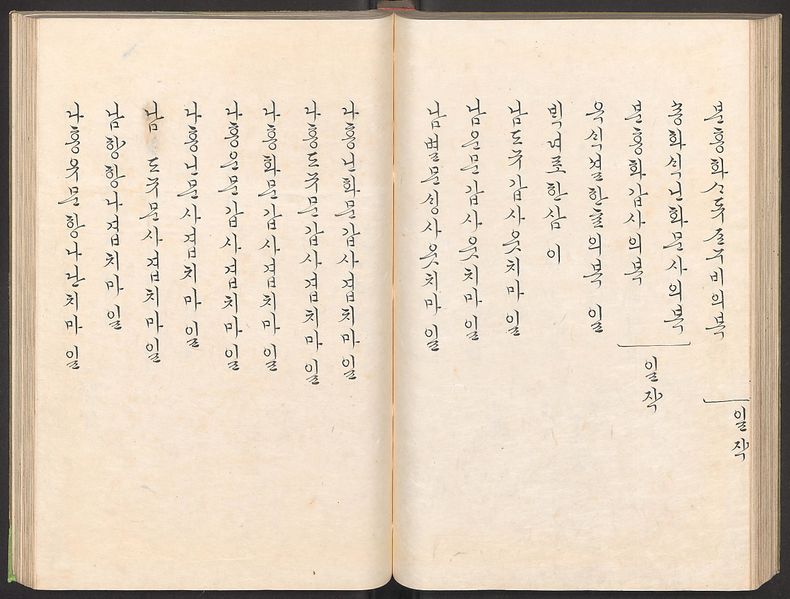 분홍화ᄉ듀쥬누비의복
일작
송화ᄉᆡᆨ난화문사의복
분홍화갑사의복
일작
옥ᄉᆡᆨ별한츌의복 일
ᄇᆡᆨ져포한삼 이
남도쥬갑사웃치마 일
남운문갑사웃치마 일
남별문ᄉᆡᆼ사웃치마 일
다홍난화문갑사겹치마 일
다홍도쥬문갑사겹치마 일
다홍화문갑사겹치마 일
다홍운문갑사겹치마 일
다홍난문사겹치마 일
남도쥬문사겹치마 일
남항항나겹치마 일
다홍옥문항나단치마 일